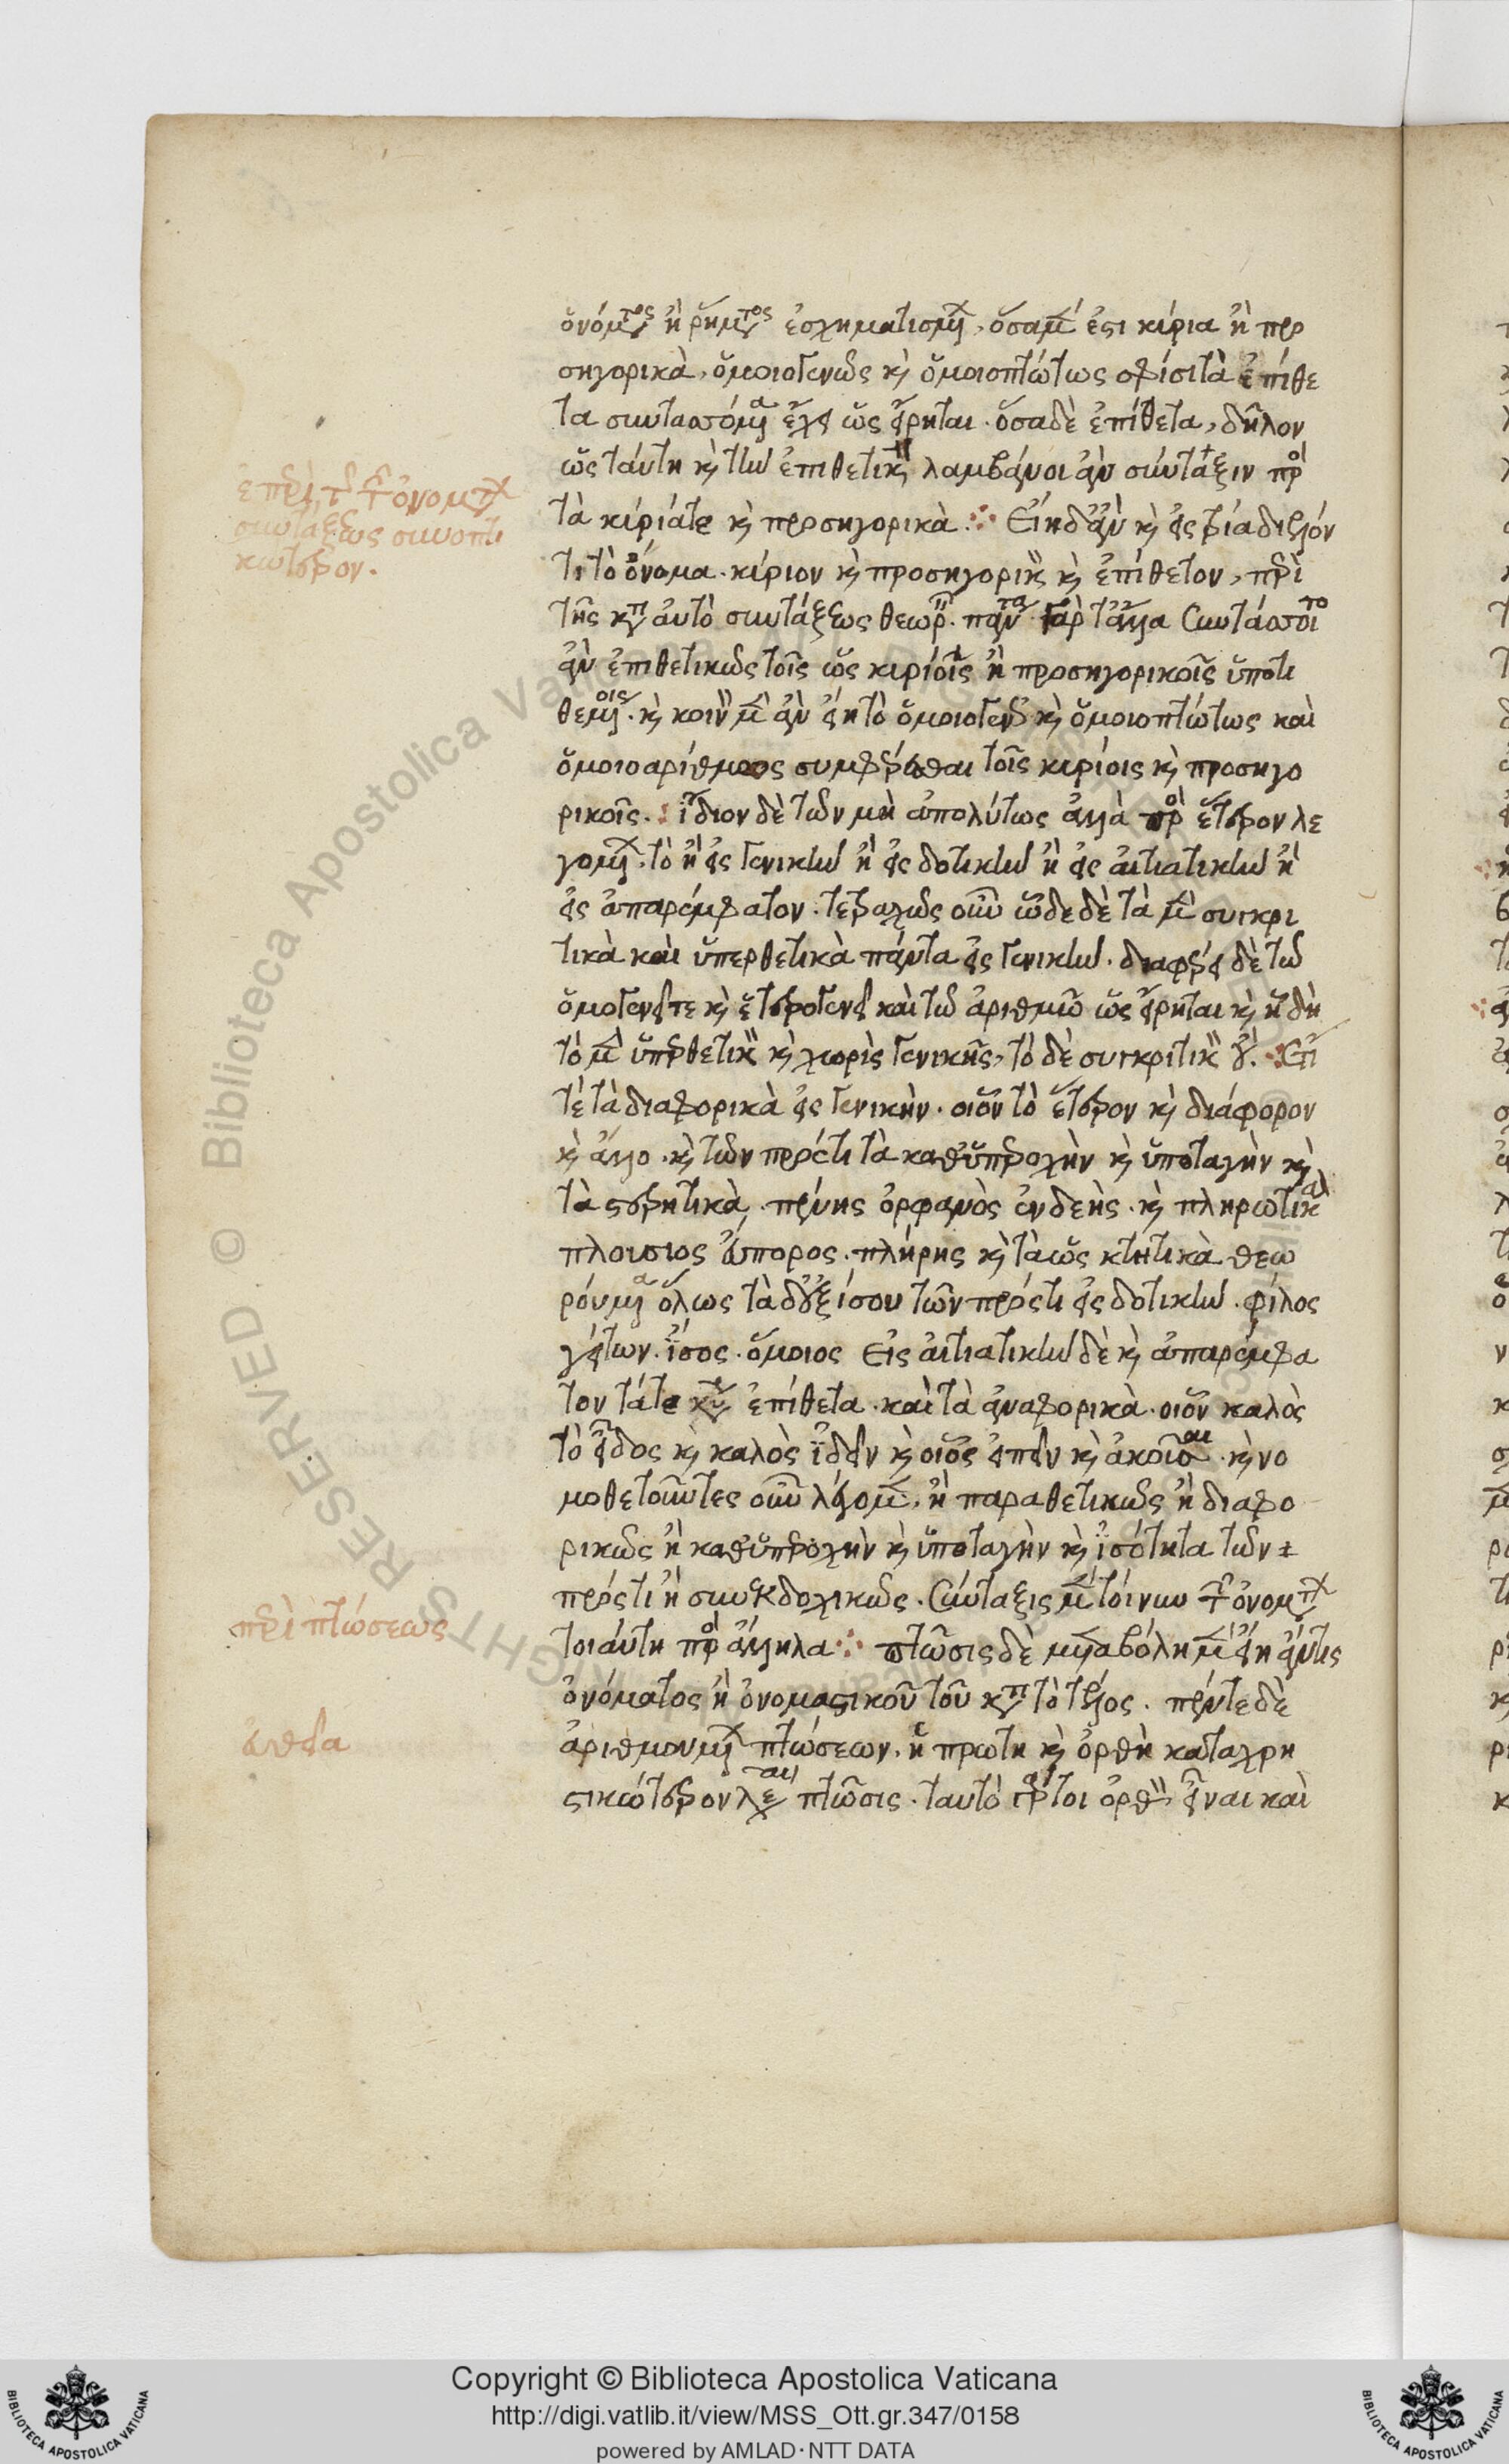 ὀνόματος ἢ ῥήματος ἐσχηματισμένων, ὅσα μὲν ἐστι κύρια ἢ προ
σηγορικὰ, ὁμοιογενῶς καὶ ὁμοιοπτώτως σφίσι τὰ ἐπίθε
τα συντασσόμενα ἔχει ὡς εἴρηται. ὅσα δὲ ἐπίθετα, δῆλον
ὡς ταύτη καὶ τὴν ἐπιθετικὴν λαμβάνοι ἂν σύνταξιν πρὸς
τὰ κύριά τε καὶ προσηγορικὰ. Εἴη δ' ἂν καὶ εἰς τρία διεξιόν
τι τὸ ὄνομα. κύριον καὶ προσηγορικὸν καὶ ἐπίθετον, περὶ
τῆς κατ' αὐτὸ συντάξεως θεωρ. πάντα γὰρ τἄλλα Συντάσσοιτο
ἂν ἐπιθετικῶς τοῖς ὡς κυρίοις ἢ προσηγορικοῖς ὑποτι
θεμένοις. καὶ κοινὸν μὲν ἂν εἴη τὸ ὁμοιογενῶς καὶ ὁμοιοπτώτως καὶ
ὁμοιοαρίθμως συμφέρεσθαι τοῖς κυρίοις καὶ προσηγο
ρικοῖς. ἴδιον δὲ τῶν μὴ ἀπολύτως ἀλλὰ πρὸς ἕτερον λε
γομένων. τὸ ἢ εἰς γενικὴν ἢ εἰς δοτικὴν ἢ εἰς αἰτιατικὴν ἢ
εἰς ἀπαρέμφατον. τετραχῶς οὖν ὧδε δὲ τὰ μὲν συγκρι
τικὰ καὶ ὑπερθετικὰ πάντα εἰς γενικὴν. διαφέρει δὲ τῷ
ὁμογενεῖ τε καὶ ἑτερογενεῖ καὶ τῷ ἀριθμῷ ὡς εἴρηται καὶ ἤδη
τὸ μὲν ὑπερθετικὸν καὶ χωρὶς γενικῆς, τὸ δὲ συγκριτικὸν οὔ. Ἔτι
τὲ τὰ διαφορικὰ εἰς γενικὴν. οἷον τὸ ἕτερον καὶ διάφορον
καὶ ἄλλο. καὶ τῶν πρός τι τὰ καθ' ὑπεροχὴν καὶ ὑποταγὴν καὶ
τὰ στερητικὰ. πένης ὀρφανὸς ἐνδεὴς. καὶ πληρωτικὰ
πλούσιος εὔπορος. πλήρης καὶ τὰ ὡς κτητικὰ θεω
ρούμενα ὅλως τὰ δ' ἐξ ἴσου τῶν πρός τι εἰς δοτικὴν. φίλος
γείτων. ἴσος. ὅμοιος Εἰς αἰτιατικὴν δὲ καὶ ἀπαρέμφα
τον τά τε ἐπίθετα. καὶ τὰ ἀναφορικὰ. οἷον καλὸς
τὸ εἶδος καὶ καλὸς ἰδεῖν καὶ οἷος εἰπεῖν καὶ ἀκοῦσαι. καὶ νο
μοθετοῦντες οὖν λέγομεν, ἢ παραθετικῶς ἢ διαφο
ρικῶς ἢ καθ' ὑπεροχὴν καὶ ὑποταγὴν καὶ ἰσότητα τῶν
πρός τι ἢ συνεκδοχικῶς. Σύνταξις μὲν τοίνυν τῶν ὀνομάτων
τοιαύτη πρὸς ἄλληλα πτῶσις δὲ μεταβολὴ μὲν εἴη ἄν τις
ὀνόματος ἢ ὀνομαστικοῦ τοῦ κατὰ τὸ τέλος. πέντε δὲ
ἀριθμουμένων πτώσεων, ἡ πρώτη καὶ ὀρθὴ καταχρη
στικώτερον λέγεται πτῶσις. ταυτὸ γάρ τοι ὀρθὴν εἶναι καὶ
ἐπὶ τῶν ὀνομάτων
συντάξεως συνοπτι
κώτερον.
περὶ πτώσεως
εὐθεῖα
Copyright © Biblioteca Apostolica Vaticana
http://digi.vatlib.it/view/MSS_Ott.gr.347/0158
powered by AMLAD·NTT DATA
BIBLIOTECA APOSTOLICA VATICANA
BIBLIOTECA APOSTOLICA VATICANA